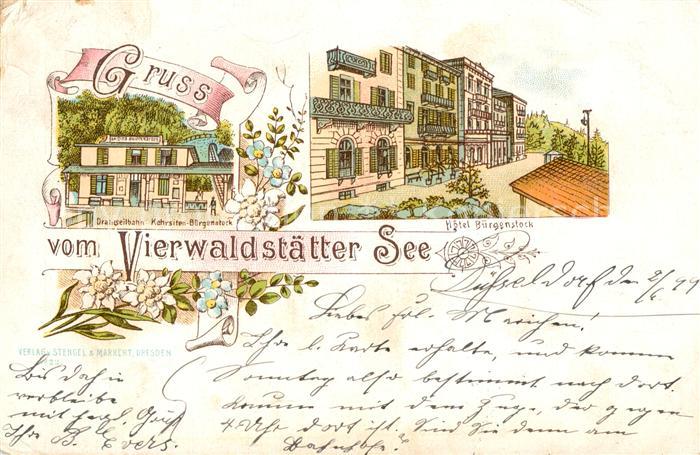 Gruss
Drahtseilbahn Kehrsiten-Bürgenstock
Hôtel Bürgenstock
vom Vierwaldstätter See
VERLAG v. STENGEL & MARKERT, DRESDEN
Düsseldorf den 9/6 99
Liebes Frl. Mariechen!
Ihre l. Karte erhalte, und komme
Sonntag also bestimmt nach dort.
komme mit dem Zuge, der gegen
4 Uhr dort ist. Sind Sie denn am
Bahnhofe?
Bis dahin
verbleibe
mit herzl. Gruß
Ihr B. Evers.